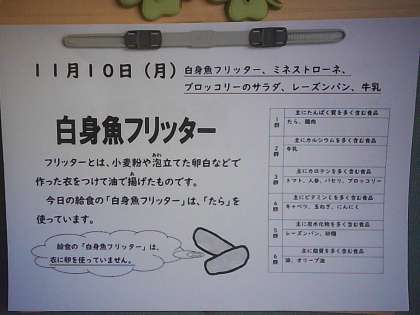 11月10日(月) 白身魚フリッター、ミネストローネ、
ブロッコリーのサラダ、レーズンパン、牛乳
白身魚フリッター
フリッターとは、小麦粉や泡立てた卵白などで
作った衣をつけて油で揚げたものです。
今日の給食の「白身魚フリッター」は、「たら」を
使っています。
給食の「白身魚フリッター」は、
衣に卵を使っていません。
1群 主にたんぱく質を多く含む食品
たら、鶏肉
2群 主にカルシウムを多く含む食品
牛乳
3群 主にカロテンを多く含む食品
トマト、人参、パセリ、ブロッコリー
4群 主にビタミンCを多く含む食品
キャベツ、玉ねぎ、にんにく
5群 主に炭水化物を多く含む食品
レーズンパン、砂糖
6群 主に脂質を多く含む食品
油、オリーブ油